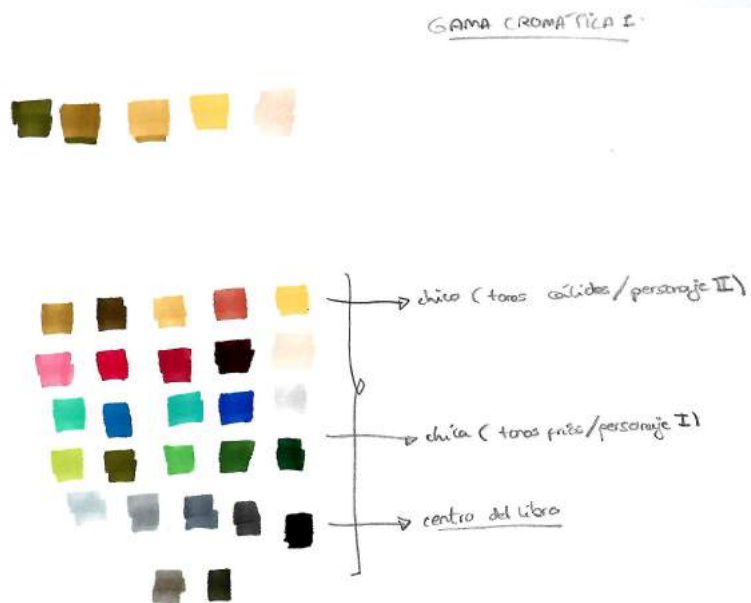 GAMA CROMÁTICA I.
chico (tonos cálidos/personaje II)
chica (tonos fríos/personaje I)
centro del libro